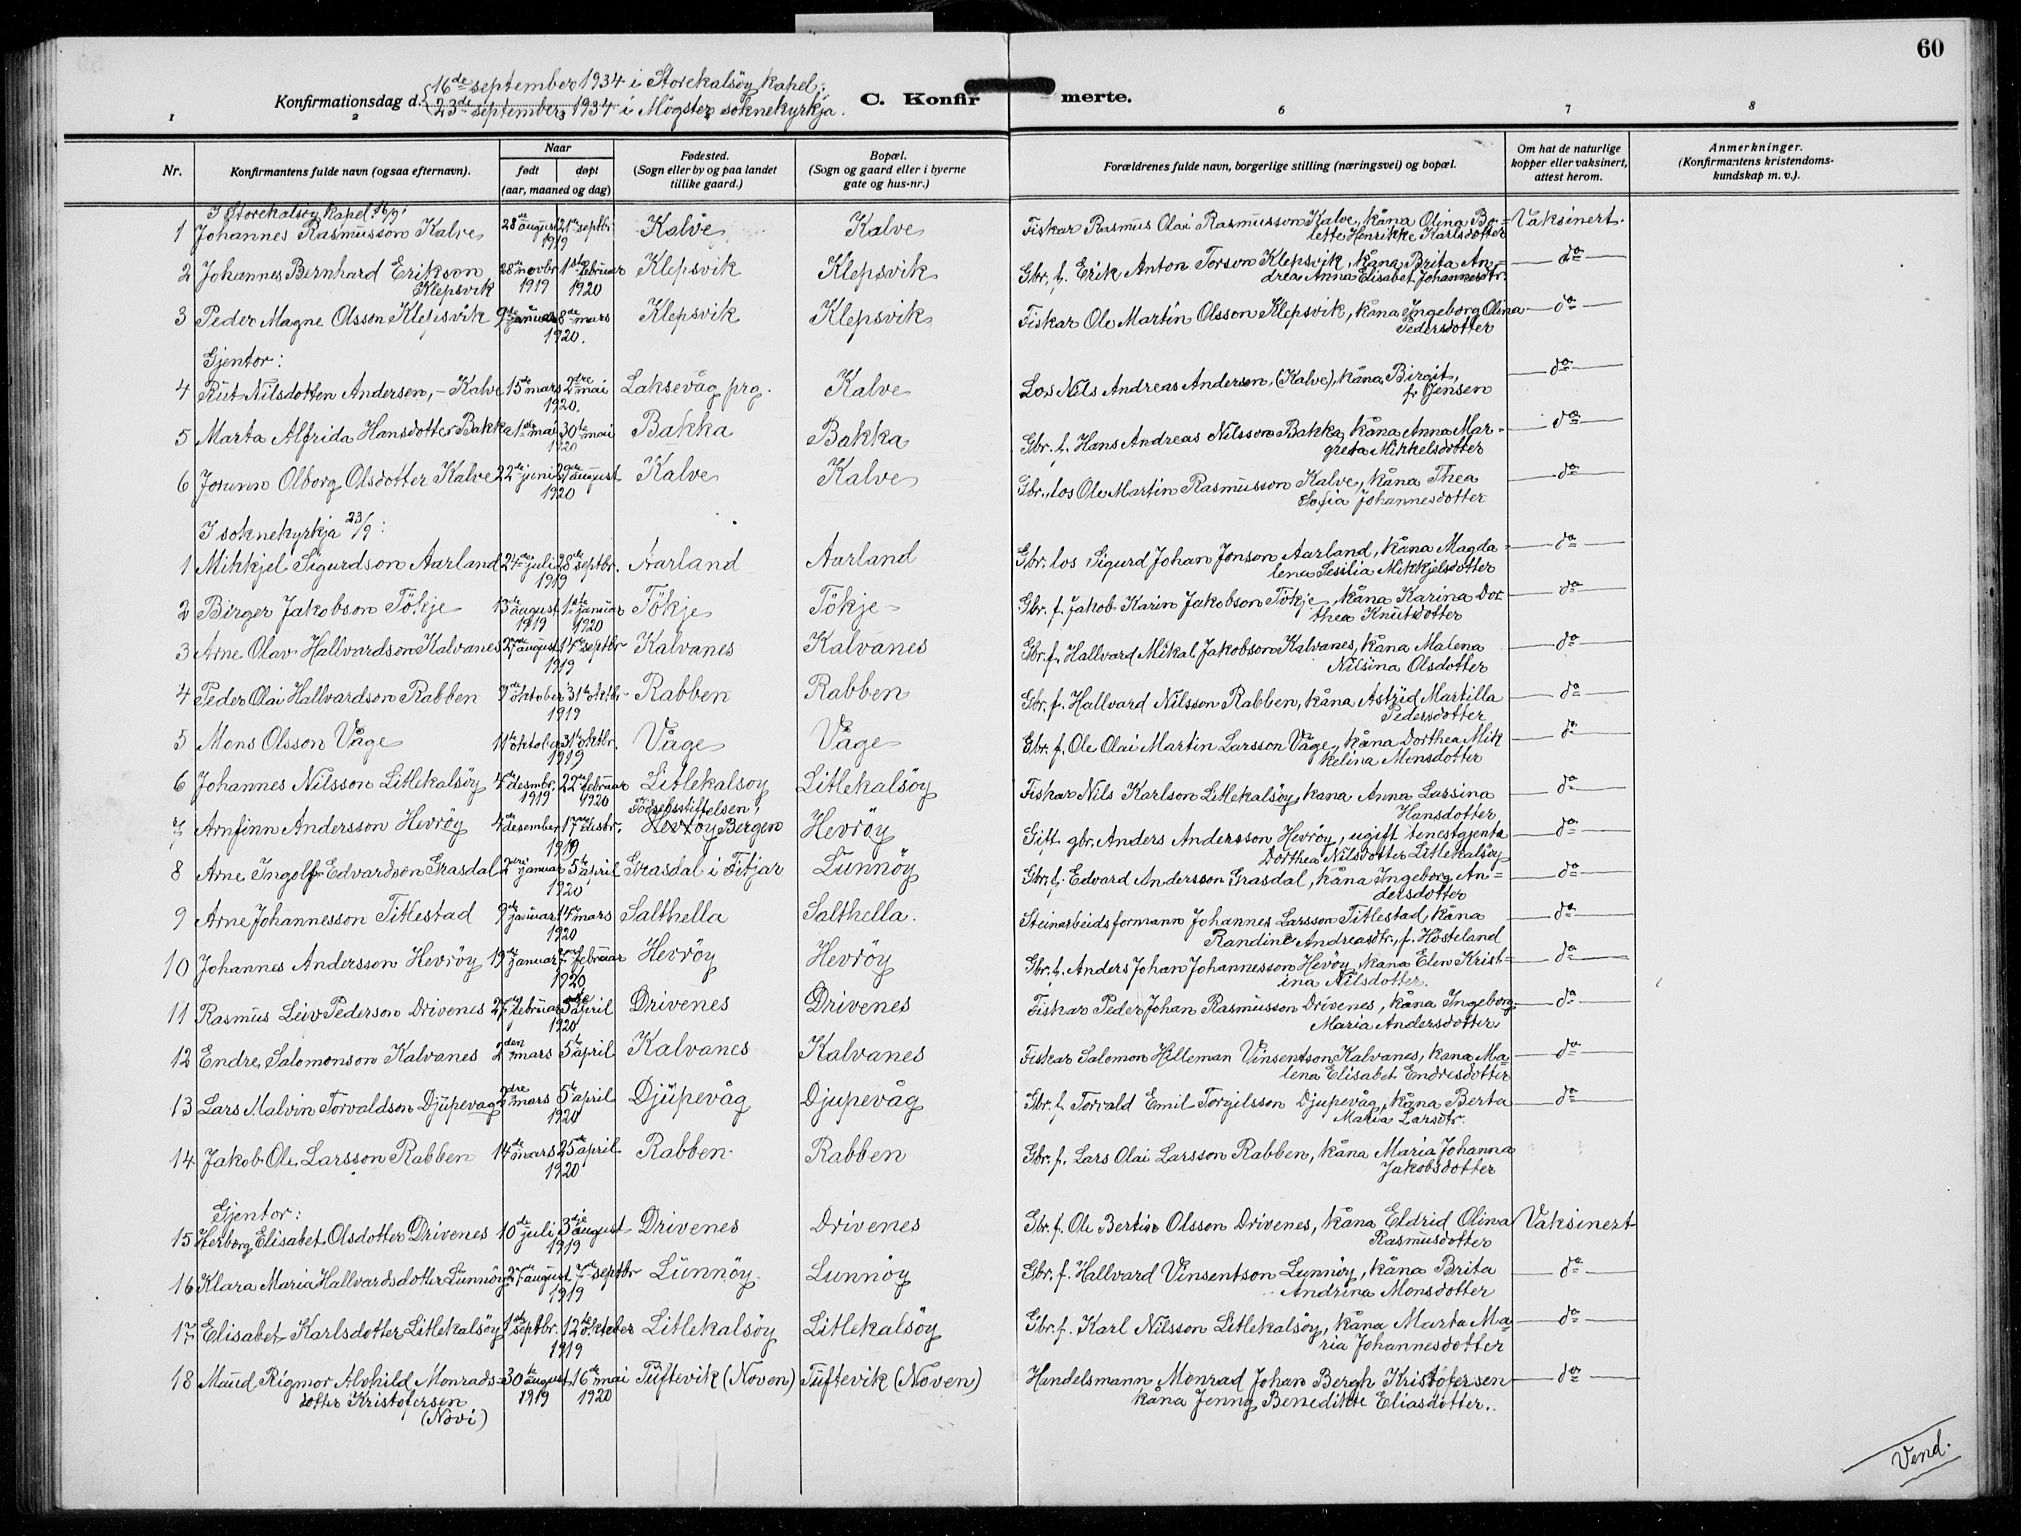 60
16de september 1934 i Storekalsöy kapel;
Konfirmationsdag d. 23de september 1934 i Mögster soknekyrkja. C. Konfirmerte.
1 2 3 4 6 7 8
Nr. Konfirmantens fulde navn (ogsaa efternavn). Naar født døpt (aar, maaned og dag) Fødested. (Sogn eller by og paa landet tillike gaard.) Bopæl. (Sogn og gaard eller i byerne gate og hus-nr.) Forældrenes fulde navn, borgerlige stilling (næringsvei) og bopæl. Om hat de naturlige kopper eller vaksinert, attest herom. Anmerkninger. (Konfirmantens kristendomskundskap m. v.).
I Storekalsöy kapel 16/9:
1 Johannes Rasmusson Kalve 28de august 21de septbr. 1919 Kalve Kalve Fiskar Rasmus Olai Rasmusson Kalve, kåna Olina Bo=
lette Henrikke Karlsdotter Vaksinert.
2 Johannes Bernhard Erikson 28de novbr. 1ste februar Klepsvik Klepsvik Gbr. f. Erik Anton Torson Klepsvik, kåna Brita An=
Klepsvik 1919 1920 drea Anna Elisabet Johannesdtr. do
3 Peder Magne Olsson Klepsvik 9de januar 8de mars Klepsvik Klepsvik Fiskar Ole Martin Olsson Klepsvik, kåna Ingeborg Olina do
1920. Pedersdotter
Gjentor:
4 Rut Nilsdotten Andersen, - Kalve 15de mars 2dre mai Laksevåg prg. Kalve Los Nils Andreas Andersen, (Kalve), kåna Birgit, do
1920. f. Jensen
5 Marta Alfrida Hansdotter Bakka 1ste mai 30te mai Bakka Bakka Gbr. f. Hans Andreas Nilsson Bakka, kåna Anna Mar- do
1920 greta Mikkelsdotter
6 Jorunn Olborg Olsdotter Kalve 22de juni 29de august Kalve Kalve Gbr., los Ole Martin Rasmusson Kalve, kåna Thea do
1920 Sofia Johannesdotter
I soknekyrkja 23/9:
1 Mikkjel Sigurdson Aarland 24de juli 28de septbr. Aarland Aarland Gbr. los Sigurd Johan Jonson Aarland, kåna Magda- do
1919 lena Sesilia Mikkjelsdotter
2 Birger Jakobson Tökje 13de august 1ste januar Tökje Tökje Gbr. f. Jakob Karin Jakobson Tökje, kåna Karina Dor- do
1919 1920 thea Knutsdotter
3 Arne Olav Hallvardson Kalvanes 27de august 14de septbr Kalvanes Kalvanes Gbr. f. Hallvard Mikal Jakobson Kalvanes, kåna Malena do
1919 Nilsina Olsdotter
4 Peder Olai Hallvardson Rabben 9de oktober 31te oktbr. Rabben Rabben Gbr. f. Hallvard Nilsson Rabben, kåna Astrid Martilla do
1919 Pedersdotter
5 Mons Olsson Våge 11te oktober 31te oktbr. Våge Våge Gbr. f. Ole Olai Martin Larsson Våge, kåna Dorthea Mik do
1919 kelina Monsdotter
6 Johannes Nilsson Litlekalsöy 4de desmbr. 22de februar Litlekalsöy Litlekalsöy Fiskar Nils Karlson Litlekalsöy, kåna Anna Larsina do
1919 1920 Hansdotter
Födselsstiftelsen,
7 Arnfinn Andersson Hevröy 4de desember 17de desbr. Hevröy Bergen Hevröy Gift gbr. Anders Andersson Hevröy, ugift tenestgjenta do
1919 Dorthea Nilsdotter Litlekalsöy
8 Arne Ingolf Edvardson Grasdal 2dre januar 5te april Grasdal i Fitjar Lunnöy Gbr. f. Edvard Andersson Grasdal, kåna Ingeborg An= do
1920 dersdotter
9 Arne Johannesson Titlestad 9de januar 14de mars Salthella Salthella. Steinarbeidsformann Johannes Larsson Titlestad, kåna do
1920 Randine Andreasdtr., f. Hösteland
10 Johannes Andersson Hevröy 19de januar februar Hevröy Hevröy Gbr. f. Anders Johan Johannesson Hevöy, kåna Elen Krist= do
1920 ina Nilsdotter.
11 Rasmus Leiv Pederson Drivenes 27de februar 5te april Drivenes Drivenes Fiskar Peder Johan Rasmusson Drivenes, kåna Ingeborg do
1920 Maria Andersdotter
12 Endre Salomonson Kalvanes 2den mars 5te april Kalvanes Kalvanes Fiskar Salomon Hilleman Vinsentson Kalvanes, kåna Ma= do
lena Elisabet Endresdotter
13 Lars Malvin Torvaldson Djupevag 2dre mars 5te april Djupevåg Djupevåg Gbr. f. Torvald Emil Torgilsson Djupevåg, kåna Berta do
1920 Maria Larsdtr.
14 Jakob Ole Larsson Rabben 14de mars 25de april Rabben Rabben Gbr. f. Lars Olai Larsson Rabben, kåna Maria Johanna
1920 Jakobsdotter
Gjentor:
15 Herborg Elisabet Olsdotter Drivenes 10de juli 3dje august Drivenes Drivenes Gbr. f. Ole Bertin Olsson Drivenes, kåna Eldrid Olina Vaksinert
1919 Rasmusdotter
16 Klara Maria Hallvardsdotter Lunnöy 27de august 7de septbr Lunnöy Lunnöy Gbr. f. Hallvard Vinsentson Lunnöy, kåna Brita do
1919 Andrina Monsdotter
17 Elisabet Karlsdotter Litlekalsöy 1ste septbr. 12te oktober Litlekalsöy Litlekalsöy Gbr. f. Karl Nilsson Litlekalsöy, kåna Marta Ma= do
1919 ria Johannesdotter
18 Maud Rigmor Alvhild Monrads- 30te august 16de mai Tuftevik (Noven) Tuftevik (Noven) Handelsmann Monrad Johan Bergh Kristofersen do
dotter Kristofersen 1919 1920 kåna Jenny Benedikte Eliasdotter.
(Novi)
Vend.